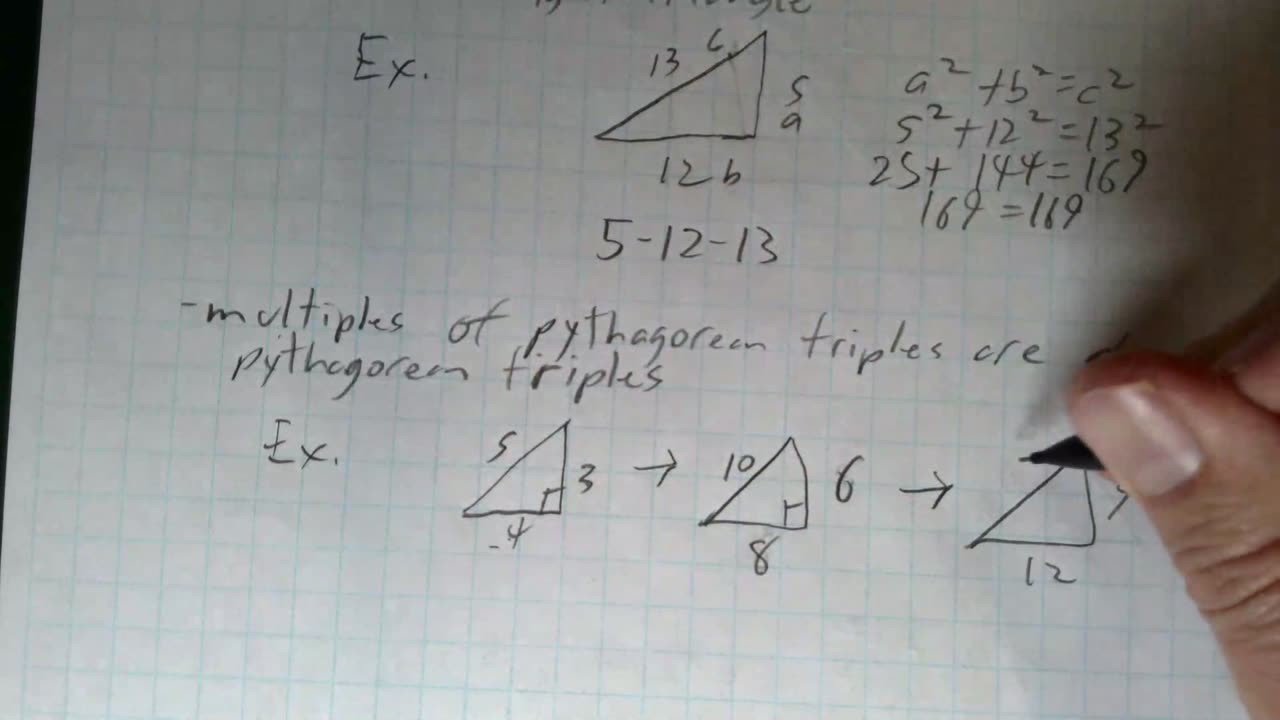 Ex.
13 c
5
a
12 b
a² + b² = c²
5² + 12² = 13²
25 + 144 = 169
169 = 169
5-12-13
-multiples of pythagorean triples are
pythagorean triples
Ex.
5 3 → 10 6 →
4 8 12